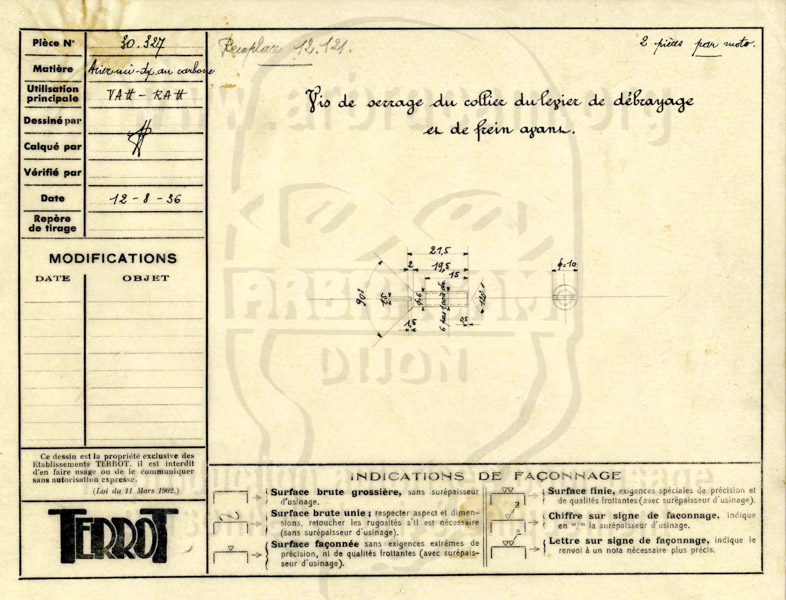 Pièce N° 30.327
Matière Acier mi-dx au carbone
Utilisation principale VAH - RAH
Dessiné par
Calqué par
Vérifié par
Date 12 - 8 - 36
Repère de tirage
MODIFICATIONS
DATE OBJET
Ce dessin est la propriété exclusive des
Etablissements TERROT, il est interdit
d'en faire usage ou de le communiquer
sans autorisation expresse.
(Loi du 11 Mars 1902.)
TERROT
Remplac 12.121.
2 pièces par moto.
Vis de serrage du collier du levier de débrayage
et de frein avant.
21,5
2 19,5
15
90°
1,5
1,5
φ=6
6 pas
0,5
120°
φ=10
www.arbracam.org
DIJON
INDICATIONS DE FAÇONNAGE
Surface brute grossière, sans surépaisseur
d'usinage.
Surface brute unie ; respecter aspect et dimen-
sions, retoucher les rugosités s'il est nécessaire
(sans surépaisseur d'usinage).
Surface façonnée sans exigences extrêmes de
précision, ni de qualités frottantes (avec surépais-
seur d'usinage).
Surface finie, exigences spéciales de précision et
de qualités frottantes (avec surépaisseur d'usinage).
Chiffre sur signe de façonnage, indique
en m/m la surépaisseur d'usinage.
Lettre sur signe de façonnage, indique le
renvoi à un nota nécessaire plus précis.